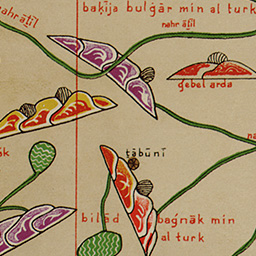 nahrātīl
baḳīja bulġār min al turk
nahr ātīl
gebel arda
tābūnī
bilād
baġnāk min
al turk